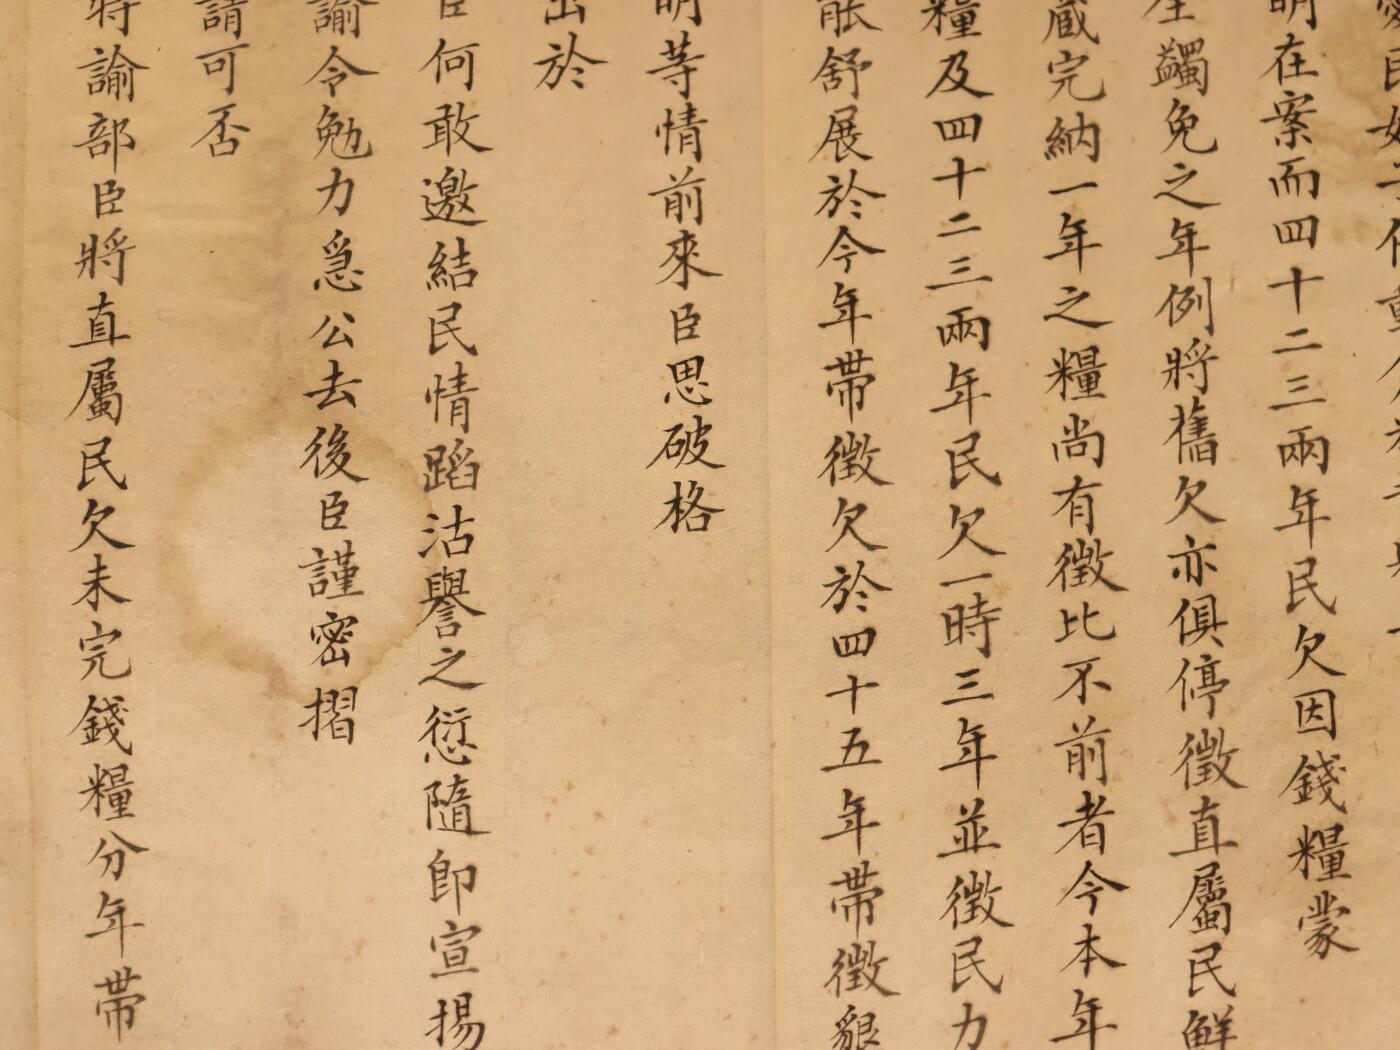 明在案而四十二三兩年民欠因錢糧蒙
蠲免之年例將舊欠亦俱停徵直屬民鮮
蔵完納一年之糧尚有徵比不前者今本年
糧及四十二三兩年民欠一時三年並徵民力
舒展於今年帶徵欠於四十五年帶徵懇
明等情前來臣思破格
出於
臣何敢邀結民情蹈沽譽之愆隨即宣揚
諭令勉力急公去後臣謹密摺
請可否
特諭部臣將直屬民欠未完錢糧分年帶